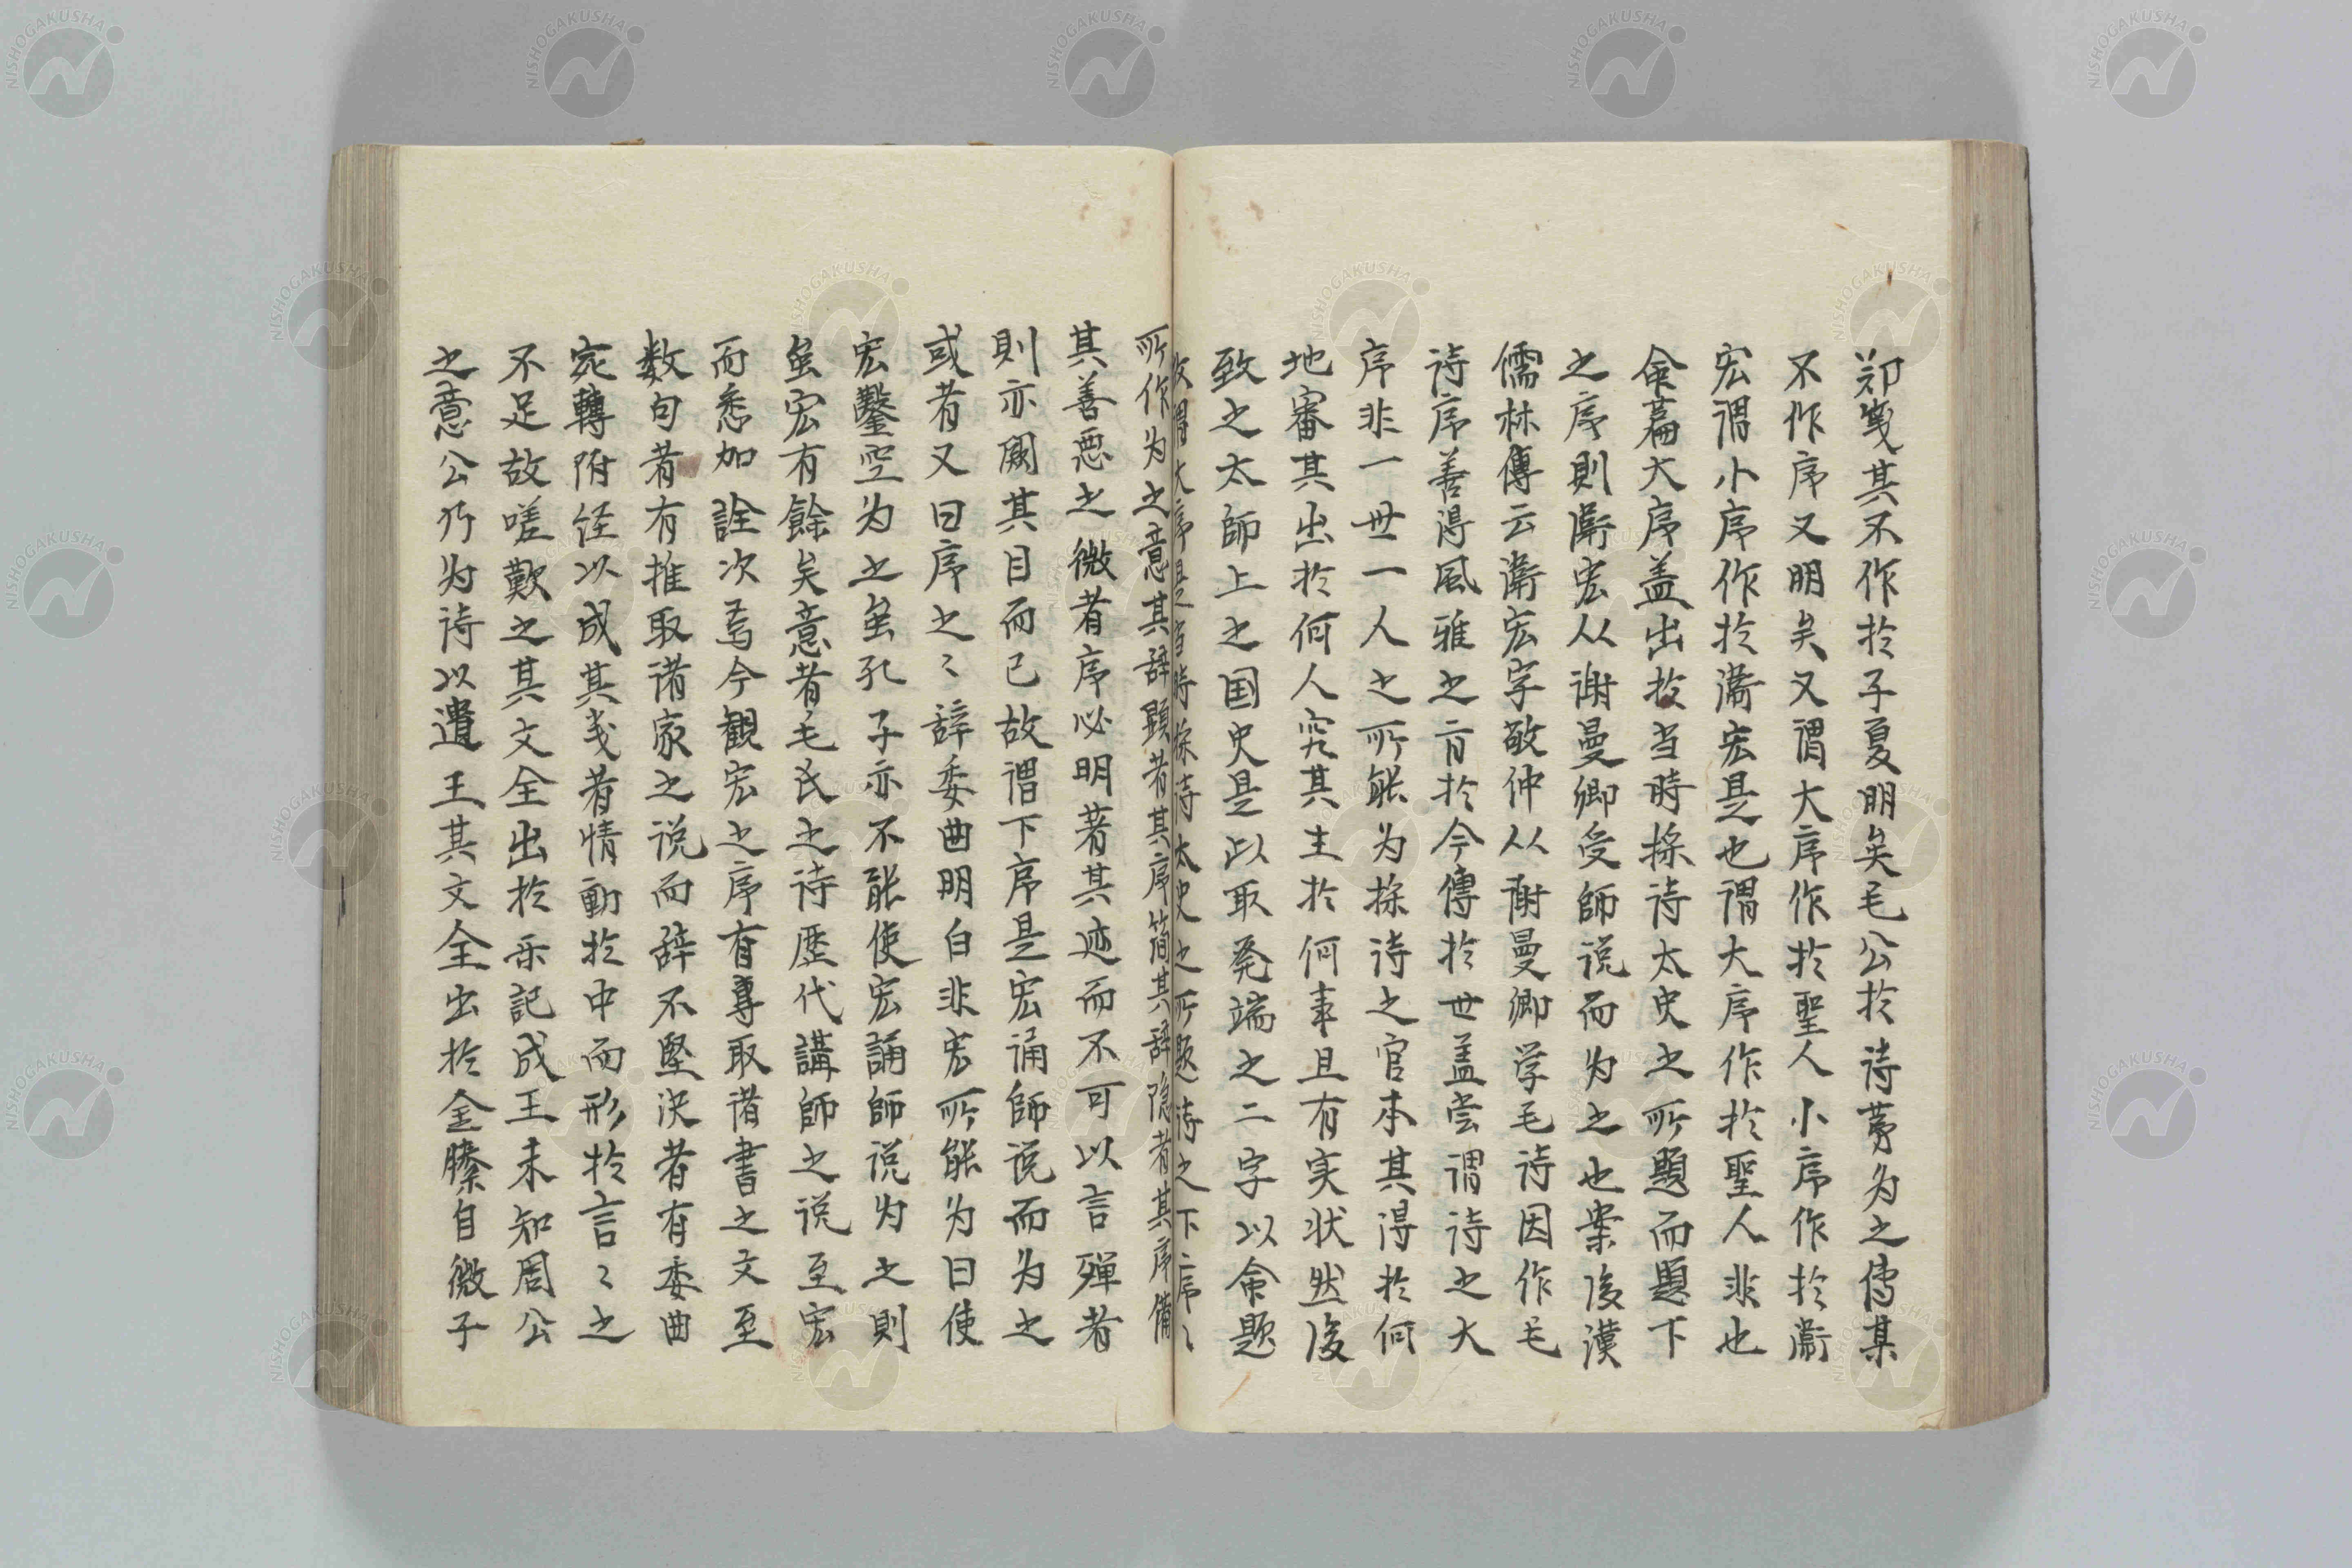 鄭箋其不作於子夏明矣毛公於詩萼为之傳某
不作序又明矣又謂大序作於聖人小序作於衛
宏謂小序作於衛宏是也謂大序作於聖人非也
命萹大序盖出於当時採詩太史之所題而題下
之序則衛宏从谢曼卿受師说而为之也案後漢
儒林傳云衛宏字敬仲从谢曼卿学毛诗因作毛
诗序善得風雅之肯於今傳於世盖尝谓诗之大
序非一世一人之所能为採诗之官本其得於何
地審其出於何人究其主於何事且有实状然後
致之太師上之国史是以取発端之二字以命题
故謂大序是当時採诗太史之所题诗之下序〻
所作为之意其辞顕者其序简其辞隐者其序備
其善悪之微者序必明著其迹而不可以言殫者
則亦闕其目而已故谓下序是宏诵師说而为之
或者又曰序之〻辞委曲明白非宏所能为曰使
宏鑿空为之虽孔子亦不能使宏誦師说为之則
虽宏有餘矣意者毛氏之诗歴代講師之说至宏
而悉加詮次焉今観宏之序有專取诸書之文至
数句者有推取诸家之说而辞不坚决者有委曲
宛轉附经以成其义者情動於中而形於言〻之
不足故嗟歎之其文全出於乐記成王未知周公
之意公乃为诗以遺王其文全出於金縢自微子
NISHOGAKUSHA